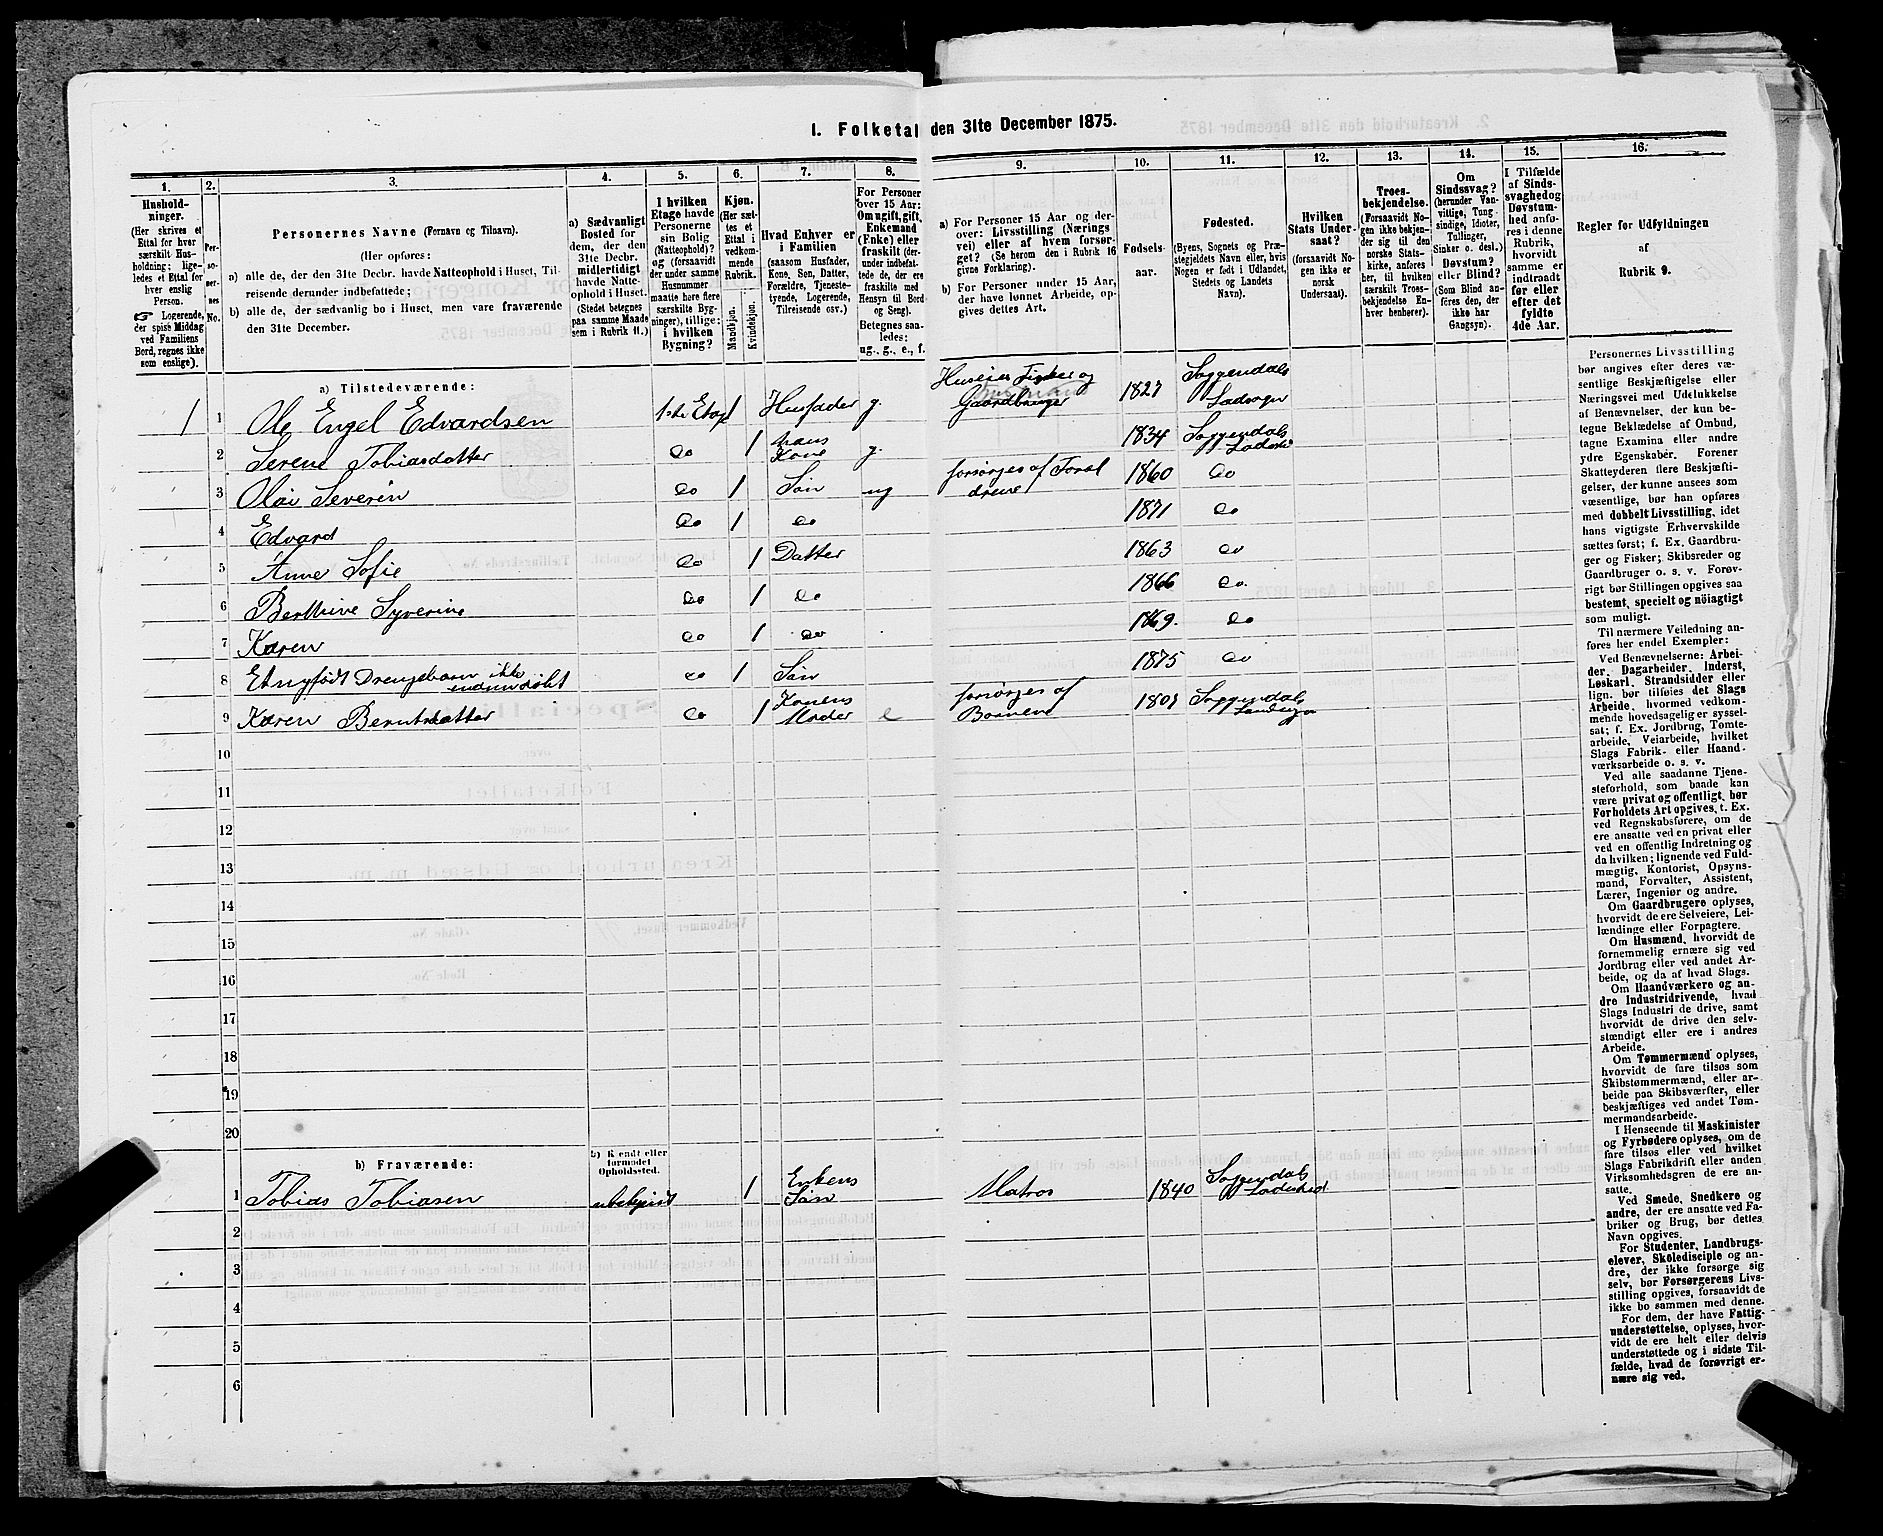 1. Folketal den 31te December 1875.
1. 2. 3. 4. 5. 6. 7. 8. 9. 10. 11. 12. 13. 14. 15. 16.
Husholdninger.
(Her skrives et
Ettal for hver
særskilt Husholdning; ligeledes et Ettal for
hver enslig
Person.
☞ Logerende,
der spise Middag
ved Familiens
Bord, regnes ikke
som enslige).
Personernes No.
Personernes Navne (Fornavn og Tilnavn).
(Her opføres:
a) alle de, der den 31te Decbr. havde Natteophold i Huset, Tilreisende derunder indbefattede;
b) alle de, der sædvanlig bo i Huset, men vare fraværende
den 31te December.
a) Sædvanligt
Bosted for
dem, der den
31te Decbr.
midlertidigt
havde Natteophold i Huset.
(Stedet betegnes
paa samme Maade
sem i Rubrik 11.)
I hvilken
Etage havde
Personerne
sin Bolig
(Natteophold)?
og (forsaavidt
der under samme
Husnummer
maatte høre flere
særskilte Bygninger), tillige:
i hvilken
Bygning?
Kjøn.
(Her sættes et
Ettal i
vedkommende
Rubrik.
Mandkjøn.
Kvindekjøn.
Hvad Enhver er
i Familien
(saasom Husfader,
Kone, Søn, Datter,
Forældre, Tjenestetyende, Logerende,
Tilreisende osv.)
For Personer
over 15 Aar:
Om ugift, gift,
Enkemand
(Enke) eller
fraskilt (derunder indbefattede de, der ere
fraskilte med
Hensyn til Bord
og Seng).
Betegnes saaledes:
ug., g., e., f.
a) For Personer 15 Aar og derover: Livsstilling (Næringsvei) eller af hvem forsørget? (Se herom den i Rubrik 16
givne Forklaring).
b) For Personer under 15 Aar,
der have lønnet Arbeide, opgives dettes Art.
Fødselsaar.
Fødested.
(Byens, Sognets og Præstegjeldets Navn eller, hvis
Nogen er født i Udlandet,
Stedets og Landets
Navn).
Hvilken
Stats Undersaat?
(forsaavidt Nogen ikke er
norsk
Undersaat).
Troesbekjendelse.
(Forsaavidt Nogen ikke bekjender sig til den
norske Statskirke, anføres
her, til hvilken
særskilt Troesbekjendelse Enhver henhører).
Om
Sindssvag?
(herunder Vanvittige, Tungsindige, Idioter,
Tullinger,
Sinker o. desl.)
Døvstum?
eller Blind?
(Som Blind anføres den, der
ikke har
Gangsyn).
I Tilfælde
af Sindssvaghed og
Døvstumhed anføres i denne
Rubrik,
hvorvidt
samme er
indtraadt
før eller
efter det
fyldte
4de Aar.
Regler for Udfyldningen
af
Rubrik 9.
a) Tilstedeværende:
1 1 Ole Engel Edvardsen 1ste Etage 1 Husfader g. Huseier Fisker og Gaardbruger 1827 Soggendals Landsogn
2 Serene Tobiasdatter do 1 hans Kone g. 1834 Soggendals Ladested
3 Olai Severin do 1 Søn ug forsørges af Forældrene 1860 do
4 Edvard do 1 do 1871 do
5 Anne Sofie do 1 Datter 1863 do
6 Berthine Syverine do 1 do 1866 do.
7 Karen do 1 do 1869. do
8 Et nyfødt Drengebarn ikke endnu døbt do 1 Søn 1875 do
9 Karen Berntsdatter do 1 Konens Moder e forsørges af Børnene Soggendals Landsogn
10
11
12
13
14
15
16
17
18
19
20
b) Fraværende:
b) Kjendt eller
formodet
Opholdssted.
1 Tobias Tobiasen ubekjendt 1 Enkens Søn Matros 1840 Soggendals Ladested
2
3
4
5
6
Personernes Livsstilling
bør angives efter deres væsentlige Beskjæftigelse eller
Næringsvei med Udelukkelse
af Benævnelser, der kun betegne Beklædelse af Ombud,
tagne Examina eller andre
ydre Egenskaber. Forener
Skatteyderen flere Beskjæftigelser, der kunne ansees som
væsentlige, bør han opføres
med dobbelt Livsstilling, idet
hans vigtigste Erhvervskilde
sættes først; f. Ex. Gaardbruger og Fisker; Skibsreder og
Gaardbruger o. s. v. Forøvrigt bør Stillingen opgives saa
bestemt, specielt og nöiagtigt
som muligt.
Til nærmere Veiledning anføres her endel Exempler:
Ved Benævnelserne: Arbeider, Dagarbeider, Inderst,
Løskarl, Strandsidder eller
lign. bør tilføies det Slags
Arbeide, hvormed vedkommende hovedsagelig er sysselsat; f. Ex. Jordbrug, Tømtearbeide, Veiarbeide, hvilket
Slags Fabrik- eller Haandværksarbeide o. s. v.
Ved alle saadanne Tjenesteforhold, som baade kan
være privat og offentligt, bør
Forholdets Art opgives, t. Ex.
ved Regnskabsførere, om de
ere ansatte ved en privat eller
ved en offentlig Indretning og
da hvilken; lignende ved Fuldmægtig, Kontorist, Opsynsmand, Forvalter, Assistent,
Lærer, Ingeniør og andre.
Om Gaardbrugere oplyses,
hvorvidt de ere Selveiere, Leilændinge eller Forpagtere.
Om Husmænd, hvorvidt de
fornemmelig ernære sig ved
Jordbrug eller ved andet Arbeide, og da af hvad Slags.
Om Haandværkere og andre Industridrivende, hvad
Slags Industri de drive, samt
hvorvidt de drive den selvstændigt eller ere i andres
Arbeide.
Om Tømmermænd oplyses,
hvorvidt de fare tilsøs som
Skibstømmermænd, eller arbeide paa Skibsværfter, eller
beskjæftiges ved andet Tømmermandsarbeide.
I Henseende til Maskinister
og Fyrbødere oplyses, om de
fare tilsøs eller ved hvilket
Slags Fabrikdrift eller anden
Virksomhedsgren de ere ansatte.
Ved Smede, Snedkere og
andre, der ere ansatte ved Fabriker og Brug, bør dettes
Navn opgives.
For Studenter, Landbrugselever, Skoledisciple og andre, der ikke forsørge sig
selv, bør Forsørgerens Livsstilling opgives, forsaavidt de
ikke bo sammen med denne.
For dem, der have Fattigunderstøttelse, oplyses, hvorvidt de ere helt eller delvis
understøttede og i sidste Tilfælde, hvad de forøvrigt ernære sig ved.